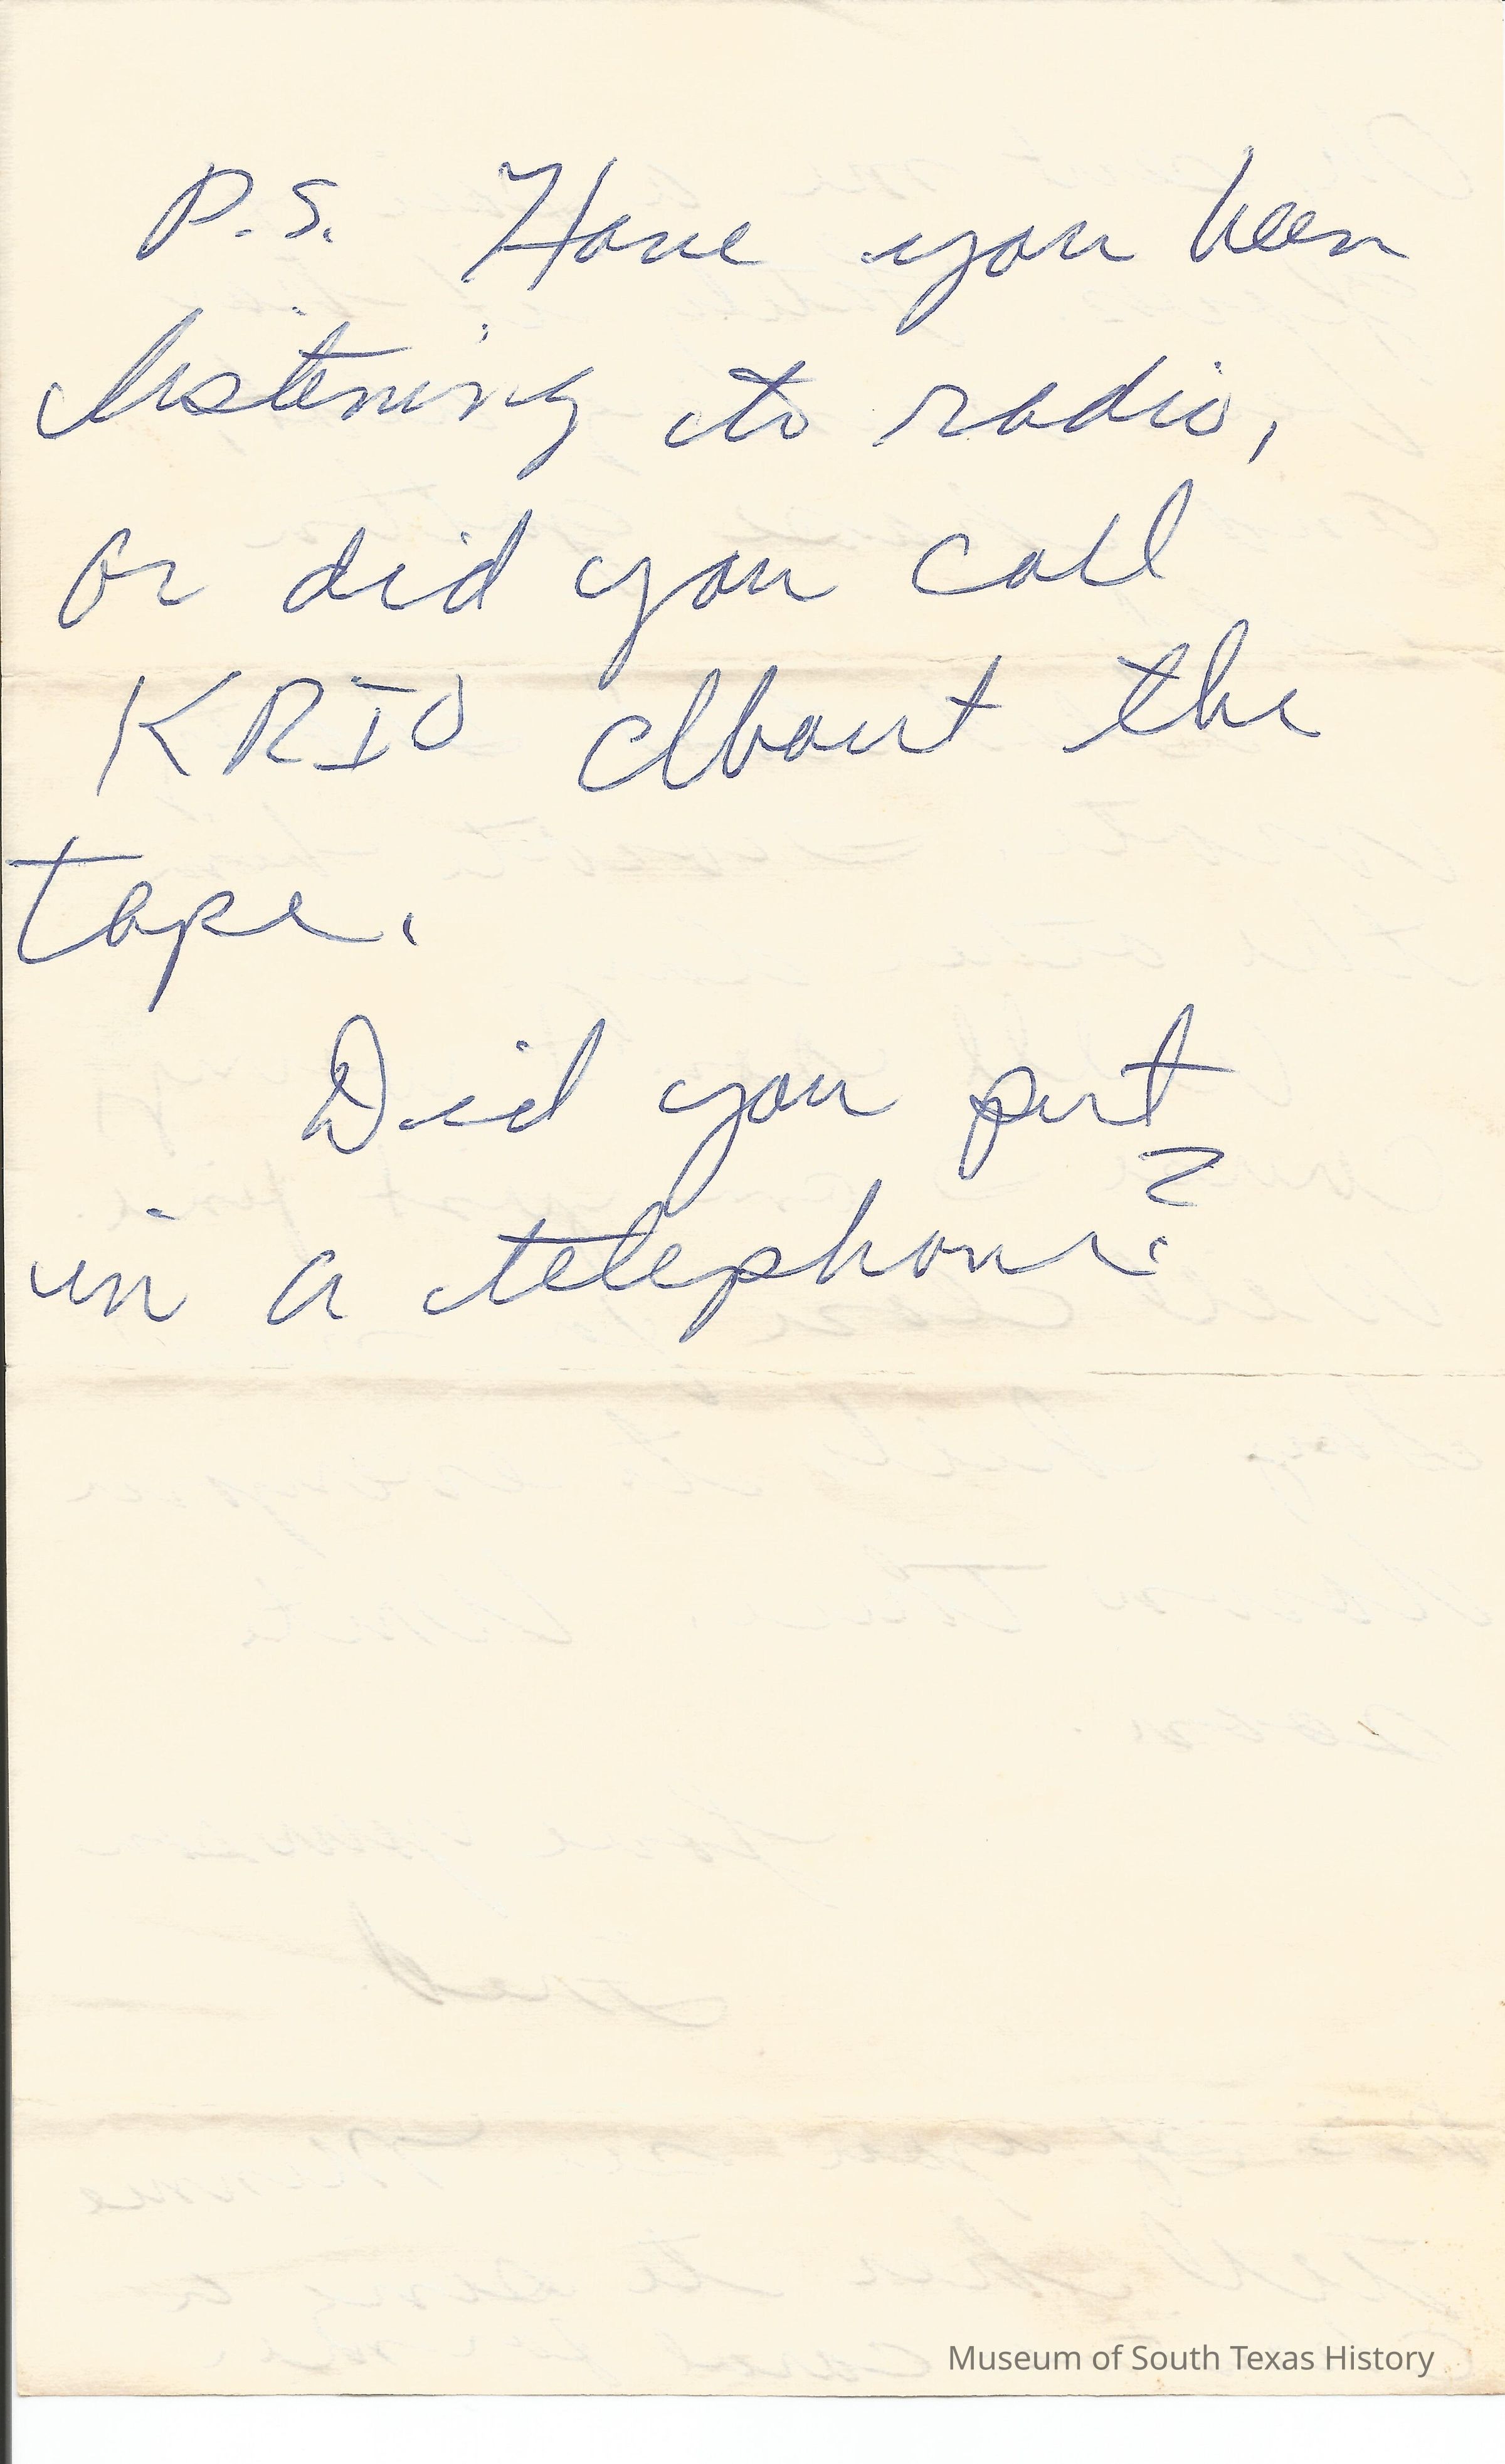 P.S. Have you been
listening to radio,
or did you call
KRIO About the
tape.
Did you put
in a telephone?
Museum of South Texas History